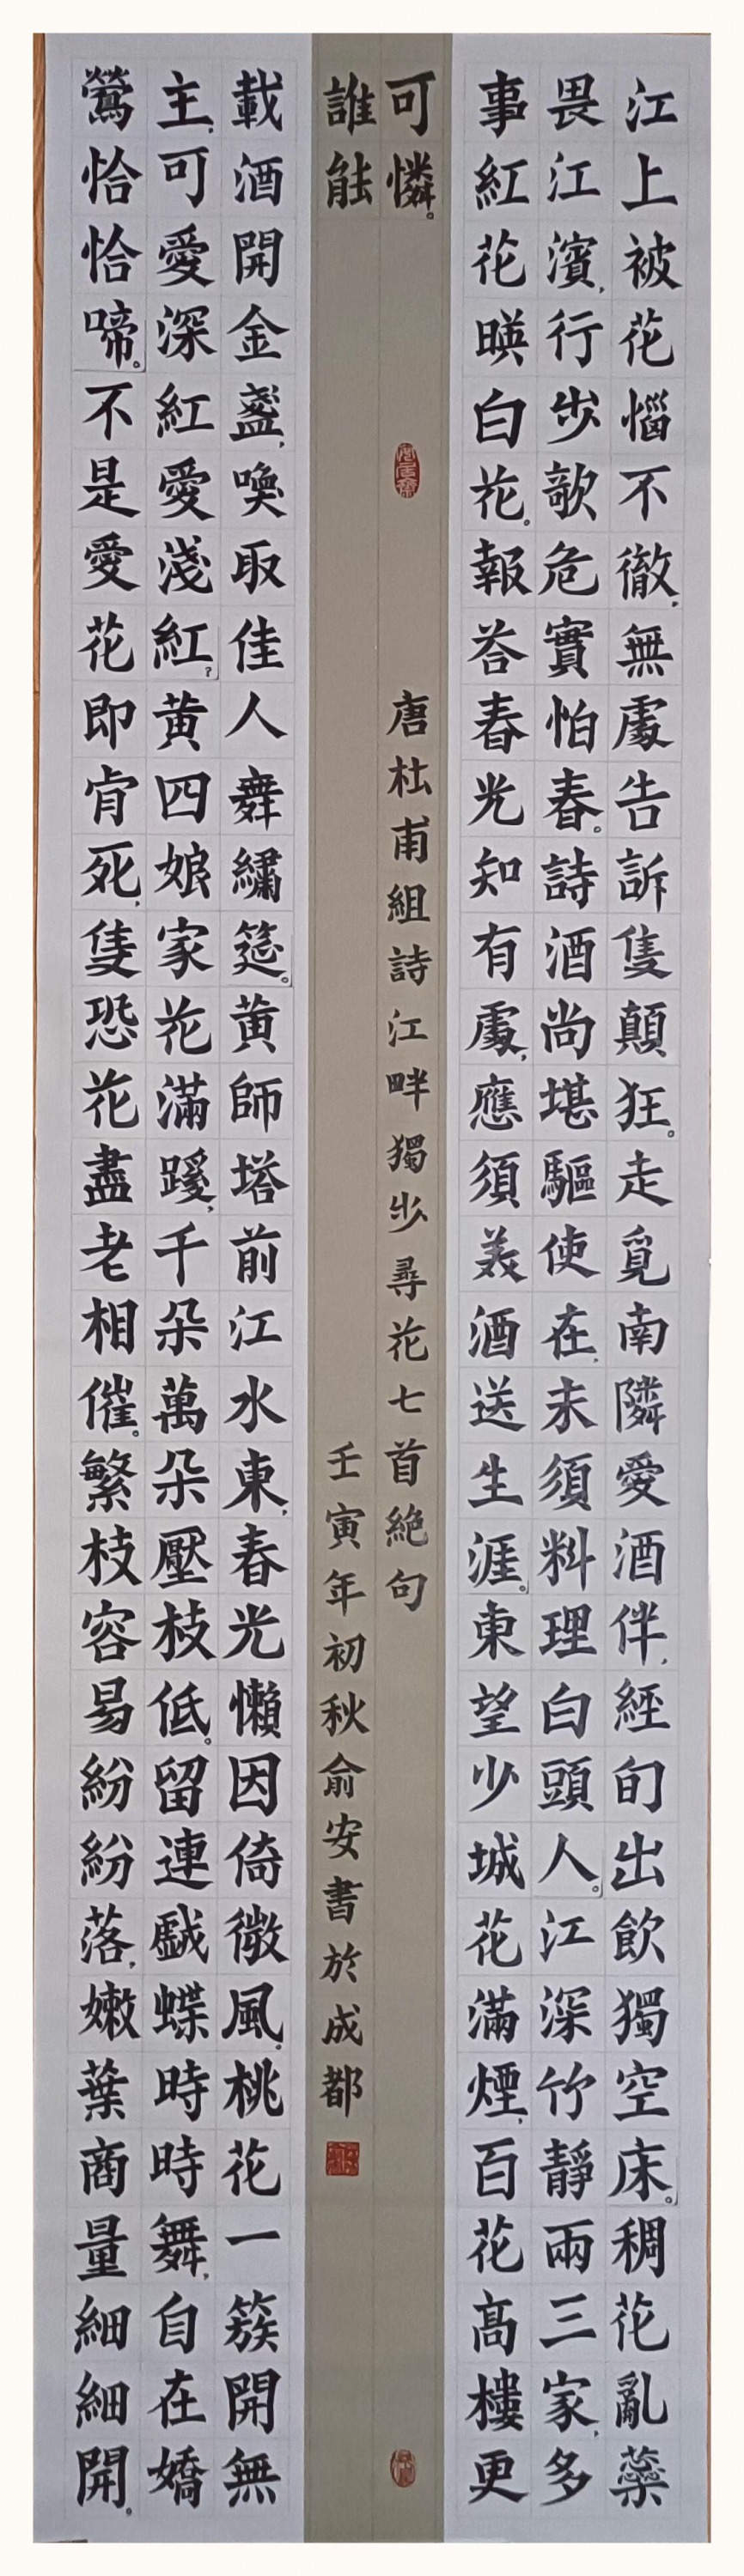 江上被花惱不徹，無處告訴隻顛狂。走覓南隣愛酒伴，經旬出飲獨空床。稠花亂蘂
畏江濱，行步欹危實怕春。詩酒尚堪驅使在，未須料理白頭人。江深竹靜兩三家，多
事紅花暎白花。報答春光知有處，應須美酒送生涯。東望少城花滿煙，百花高樓更
可憐。
誰能
載酒開金盞，喚取佳人舞繡筵。黃師塔前江水東，春光懶因倚微風。桃花一簇開無
主，可愛深紅愛淺紅？黃四娘家花滿蹊，千朵萬朵壓枝低。留連戲蝶時時舞，自在嬌
鶯恰恰啼。不是愛花即肯死，隻恐花盡老相催。繁枝容易紛紛落，嫩葉商量細細開。
唐杜甫組詩江畔獨步尋花七首絕句
壬寅年初秋俞安書於成都